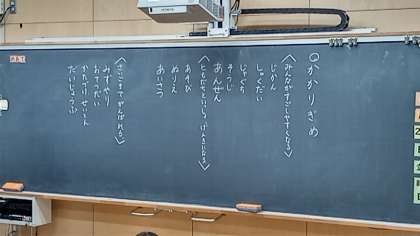 かかりぎめ
〈みんながすごしやすくなる〉
じかん
しゅくだい
じゃぐち
そうじ
あんぜん
〈ともだちといっしょ げんきになる〉
あそび
ぬりえ
あいさつ
〈さいごまで がんばれる〉
みずやり
おてつだい
せいとん
だいじょうぶ